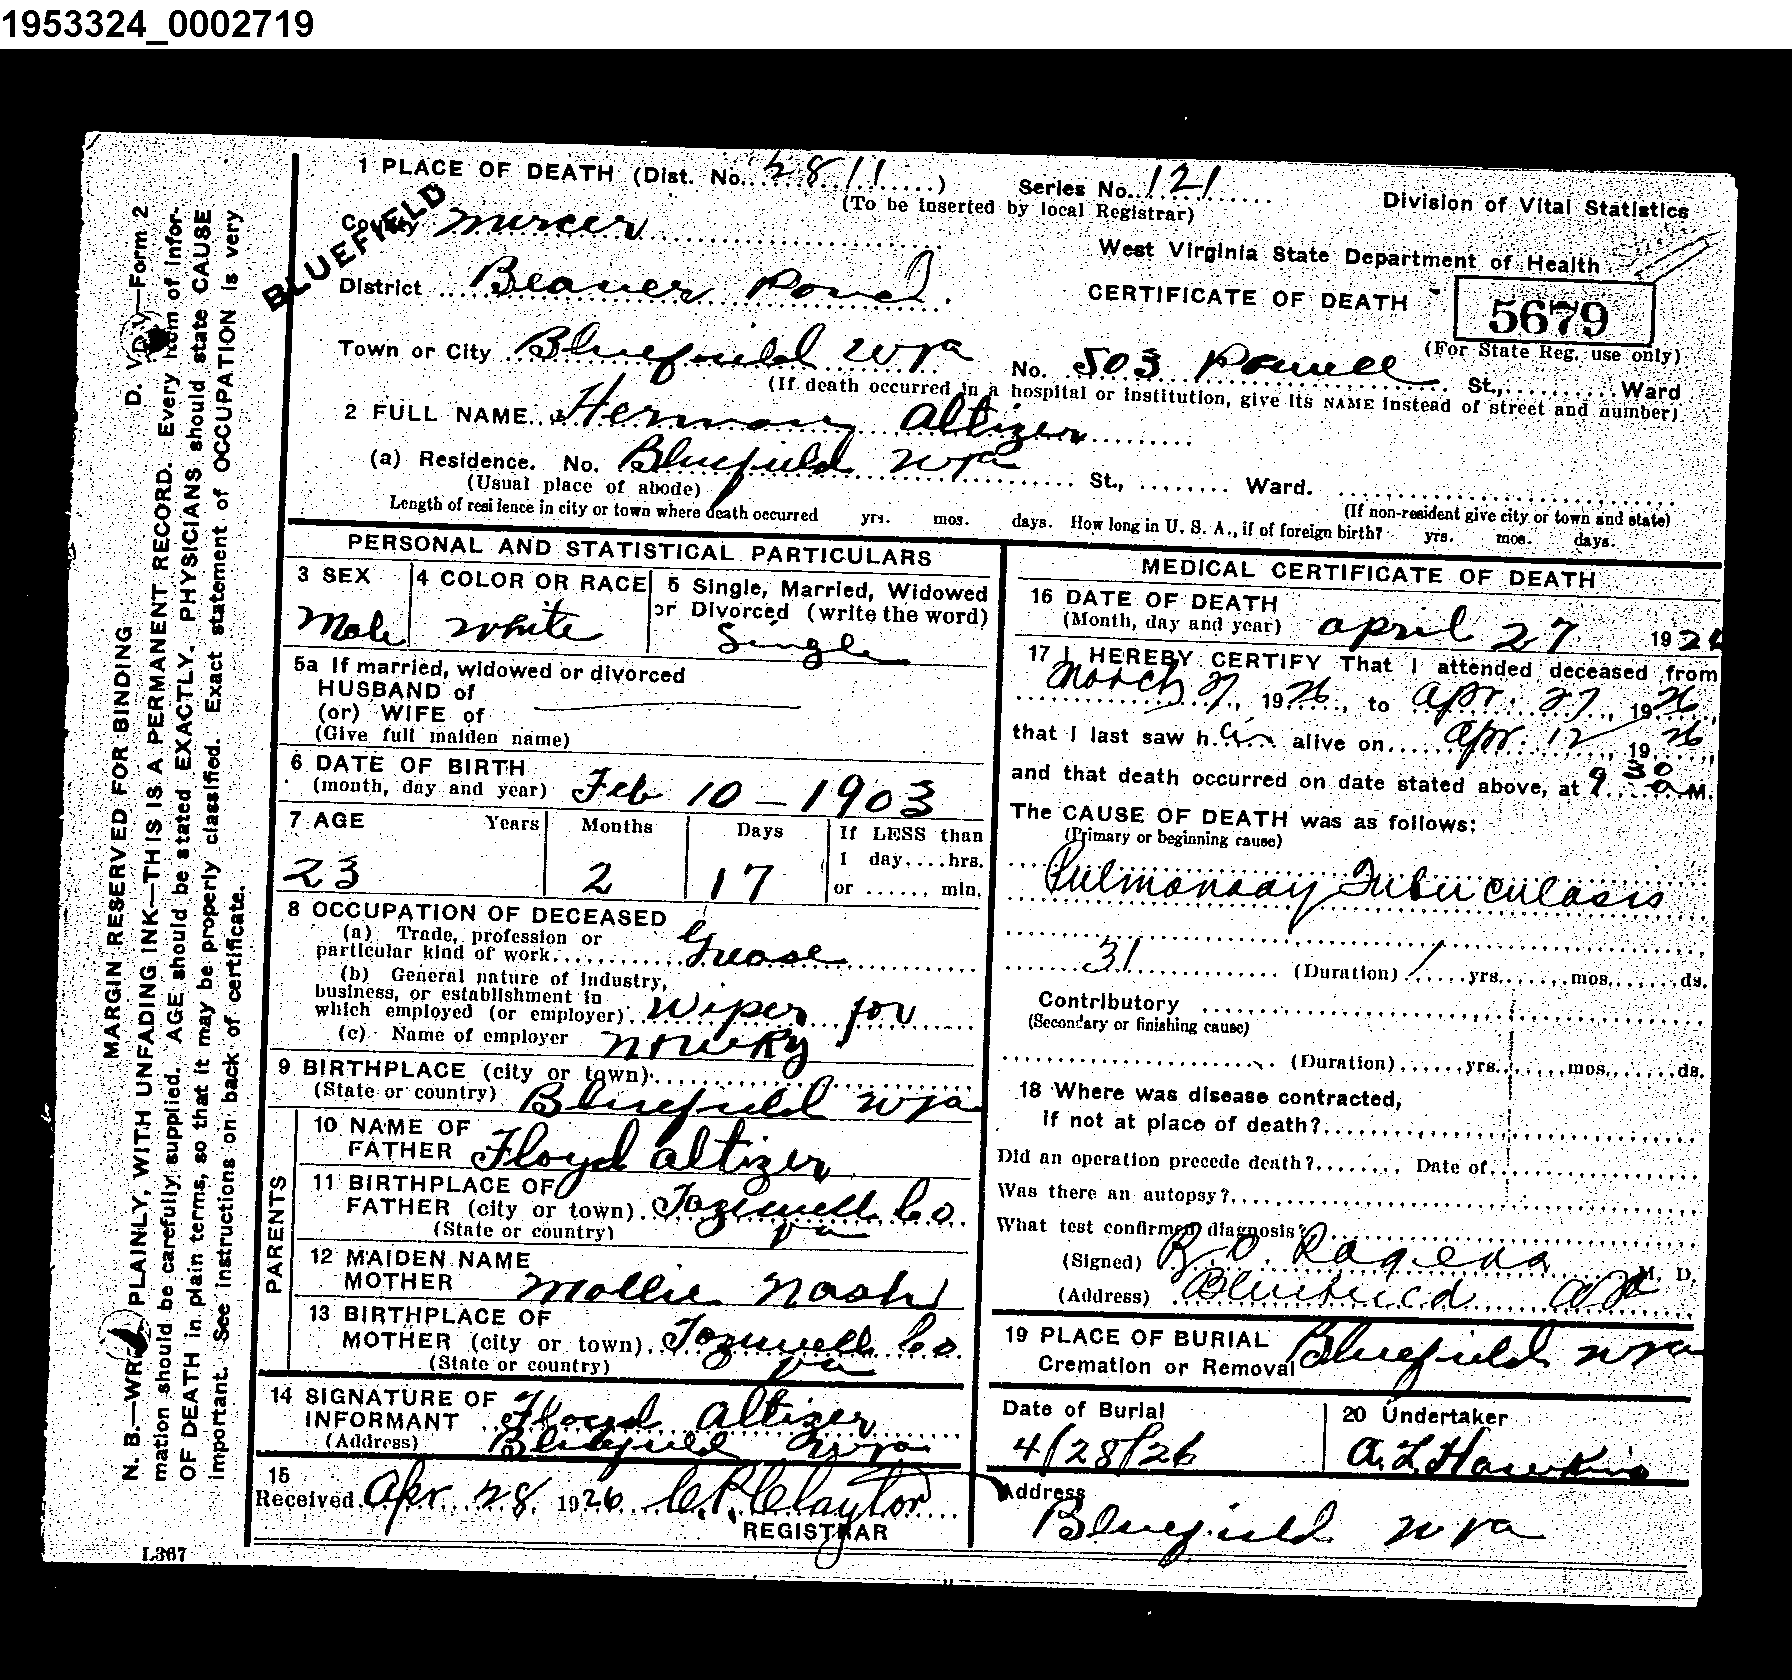 1953324_0002719
1 PLACE OF DEATH (Dist. No. 2811)
Series No. 121
(To be inserted by local Registrar)
Division of Vital Statistics
BLUEFIELD
County Mercer
West Virginia State Department of Health
District Beaver Pond
CERTIFICATE OF DEATH
5679
(For State Reg. use only)
Town or City Bluefield WVa
No. 503 Powell St., Ward
(If death occurred in a hospital or institution, give its NAME instead of street and number)
2 FULL NAME Herman Altizer
(a) Residence. No. Bluefield WVa St., Ward.
(Usual place of abode)
(If non-resident give city or town and state)
Length of residence in city or town where death occurred yrs. mos. days. How long in U. S. A., if of foreign birth? yrs. mos. days.
PERSONAL AND STATISTICAL PARTICULARS
3 SEX
Male
4 COLOR OR RACE
White
5 Single, Married, Widowed
or Divorced (write the word)
Single
5a If married, widowed or divorced
HUSBAND of
(or) WIFE of
(Give full maiden name)
6 DATE OF BIRTH
(month, day and year) Feb 10 - 1903
7 AGE Years Months Days
23 2 17
If LESS than
1 day....hrs.
or ...... min.
8 OCCUPATION OF DECEASED
(a) Trade, profession or
particular kind of work Grease
(b) General nature of industry,
business, or establishment in
which employed (or employer) Wiper for
(c) Name of employer NWRy
9 BIRTHPLACE (city or town)
(State or country) Bluefield WVa
PARENTS
10 NAME OF
FATHER Floyd Altizer
11 BIRTHPLACE OF
FATHER (city or town) Tazewell Co
(State or country) Va
12 MAIDEN NAME
MOTHER Mollie Nash
13 BIRTHPLACE OF
MOTHER (city or town) Tazewell Co
(State or country) Va
14 SIGNATURE OF
INFORMANT Floyd Altizer
(Address) Bluefield WVa
15
Received Apr 28 1926 C.P. Claytor
REGISTRAR
MEDICAL CERTIFICATE OF DEATH
16 DATE OF DEATH
(Month, day and year) April 27 1926
17 I HEREBY CERTIFY That I attended deceased from
March 27, 1926, to Apr. 27, 1926,
that I last saw him alive on Apr. 12, 1926
and that death occurred on date stated above, at 9 30 a M.
The CAUSE OF DEATH was as follows:
(Primary or beginning cause)
Pulmonary Tuberculosis
31 (Duration) 1 yrs. mos. ds.
Contributory
(Secondary or finishing cause)
(Duration) yrs. mos. ds.
18 Where was disease contracted,
if not at place of death?
Did an operation precede death? Date of
Was there an autopsy?
What test confirmed diagnosis?
(Signed) R. O. Rogers M. D.
(Address) Bluefield
19 PLACE OF BURIAL
Cremation or Removal Bluefield WVa
Date of Burial
4/28/26
20 Undertaker
A. L. Hawkins
Address
Bluefield WVa
D. V.—Form 2
MARGIN RESERVED FOR BINDING
N. B.—WRITE PLAINLY, WITH UNFADING INK—THIS IS A PERMANENT RECORD. Every item of infor-
mation should be carefully supplied. AGE should be stated EXACTLY. PHYSICIANS should state CAUSE
OF DEATH in plain terms, so that it may be properly classified. Exact statement of OCCUPATION is very
important. See instructions on back of certificate.
L367